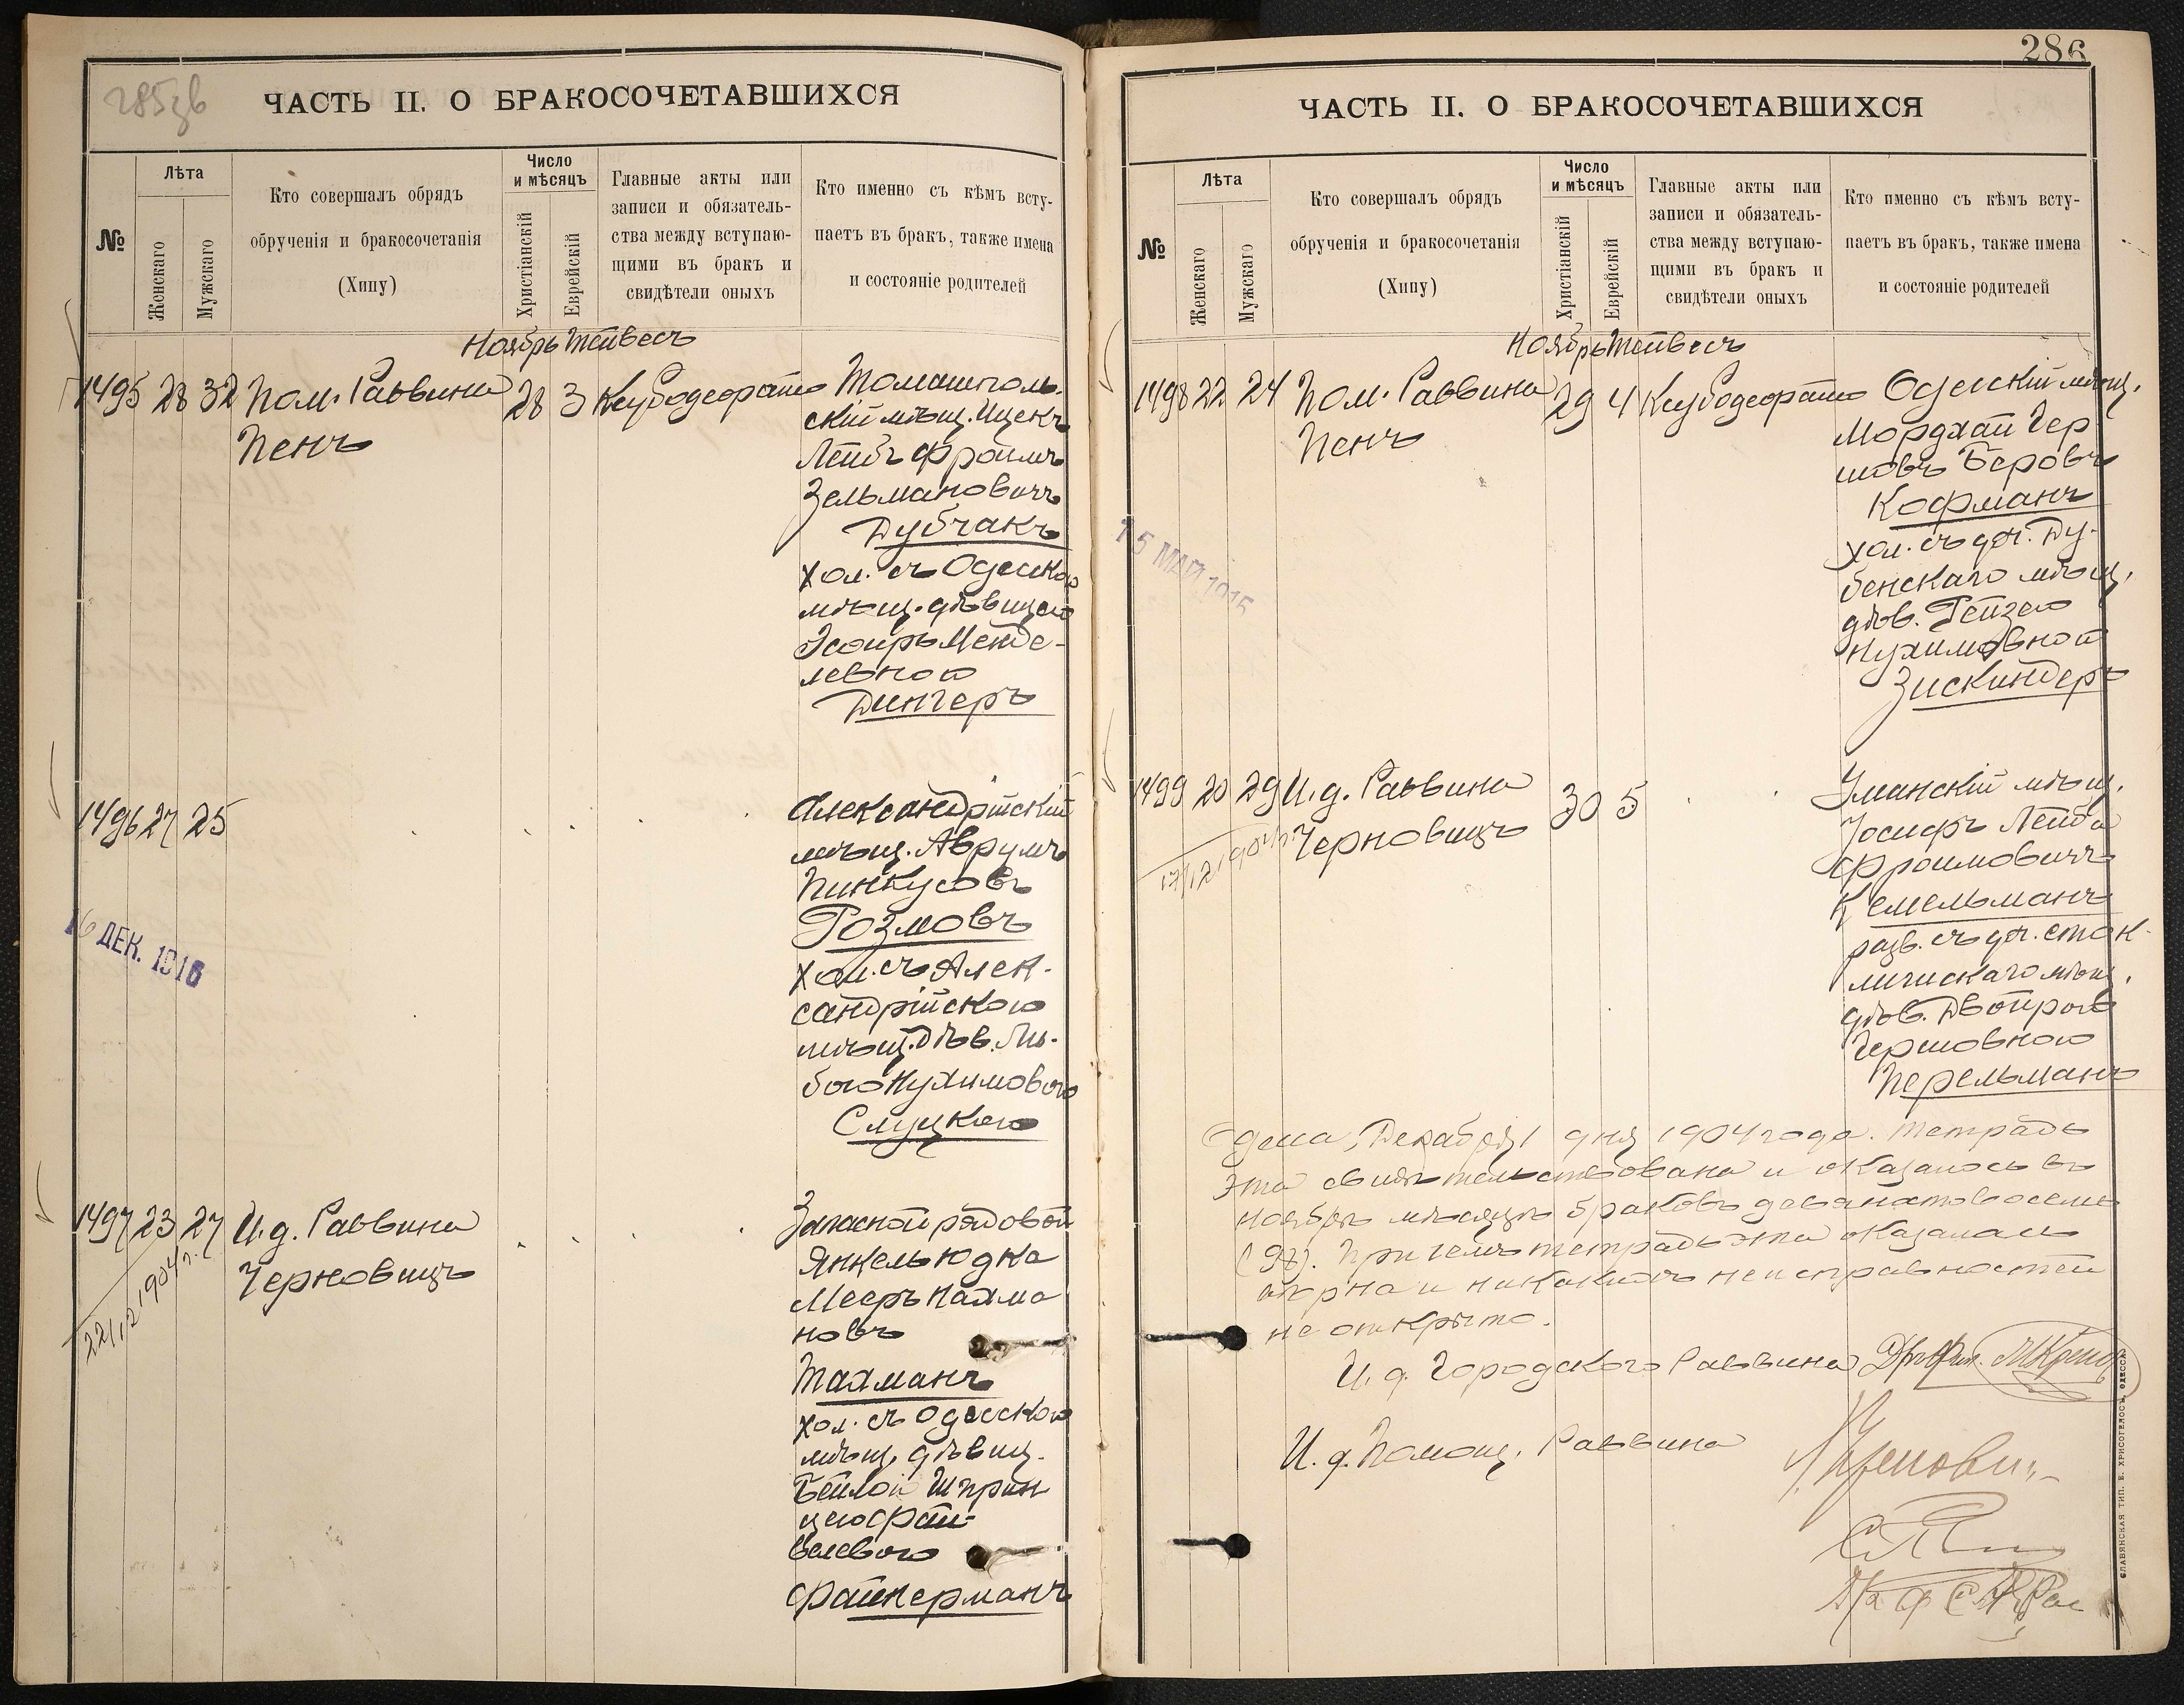 285 зв
ЧАСТЬ II. О БРАКОСОЧЕТАВШИХСЯ
№
Лѣта
Женскаго
Мужскаго
Кто совершалъ обрядъ
обрученія и бракосочетанія
(Хипу)
Число
и мѣсяцъ
Христіанскій
Еврейскій
Главные акты или
записи и обязатель-
ства между вступаю-
щими въ бракъ и
свидѣтели оныхъ
Кто именно съ кѣмъ всту-
паетъ въ бракъ, также имена
и состояніе родителей
Ноябрь Тейвесъ
1495 28 32 Пом. Раввина
Пенъ
28 3
Томашполь-
скій мѣщ. Ицекъ
Лейбъ Фроимъ
Зельмановичъ
Дубчакъ
хол. съ Одесскою
мѣщ. дѣвицею
Эсѳирь Менде-
левною
Дингеръ
1496 27 25
Александрійскій
мѣщ. Аврумъ
Пинкусовъ
Розмовъ
хол. съ Алек-
сандрійскою
мѣщ. дѣв. Лю-
бою Нухимовою
Слуцкою
16 ДЕК. 1916
1497 23 27 И. д. Раввина
Черновицъ
22/12 1904 г.
Запасной рядовой
Янкель Юдка
Мееръ Нахма
новъ
Тахманъ
хол. съ Одесскою
мѣщ. дѣвиц.
Бейлой Шприн
цею Фай-
велевою
Файнерманъ
286
ЧАСТЬ II. О БРАКОСОЧЕТАВШИХСЯ
№
Лѣта
Женскаго
Мужскаго
Кто совершалъ обрядъ
обрученія и бракосочетанія
(Хипу)
Число
и мѣсяцъ
Христіанскій
Еврейскій
Главные акты или
записи и обязатель-
ства между вступаю-
щими въ бракъ и
свидѣтели оныхъ
Кто именно съ кѣмъ всту-
паетъ въ бракъ, также имена
и состояніе родителей
Ноябрь Тейвесъ
1498 22 24 Пом. Раввина
Пенъ
29 4
Одесскій мѣщ.
Мордхай Гер
шовъ Беровъ
Кофманъ
хол. съ доч. Ду-
бенскаго мѣщ.
дѣв. Рейзею
Нухимовной
Зискиндеръ
15 МАЙ 1915
1499 20 29 И. д. Раввина
Черновицъ
30 5
17/12 1904
Уманскій мѣщ.
Іосифъ Лейба
Фроимовичъ
Кемельманъ
разв. съ доч.
мѣщ.
дѣв. Двойрою
Гершовною
Перельманъ
Одесса, Декабря 1 дня 1904 года. Тетрадь
эта свидѣтельствована и оказалось въ
ноябрѣ мѣсяцѣ браковъ девяносто восемь
(98). При чемъ тетрадь эта оказалась
вѣрна и никакихъ неисправностей
не открыто.
И. д. Городского Раввина
И. д. Помощ. Раввина
СЛАВЯНСКАЯ ТИП. Е. ХРИСОГЕЛОСЪ, ОДЕССА.